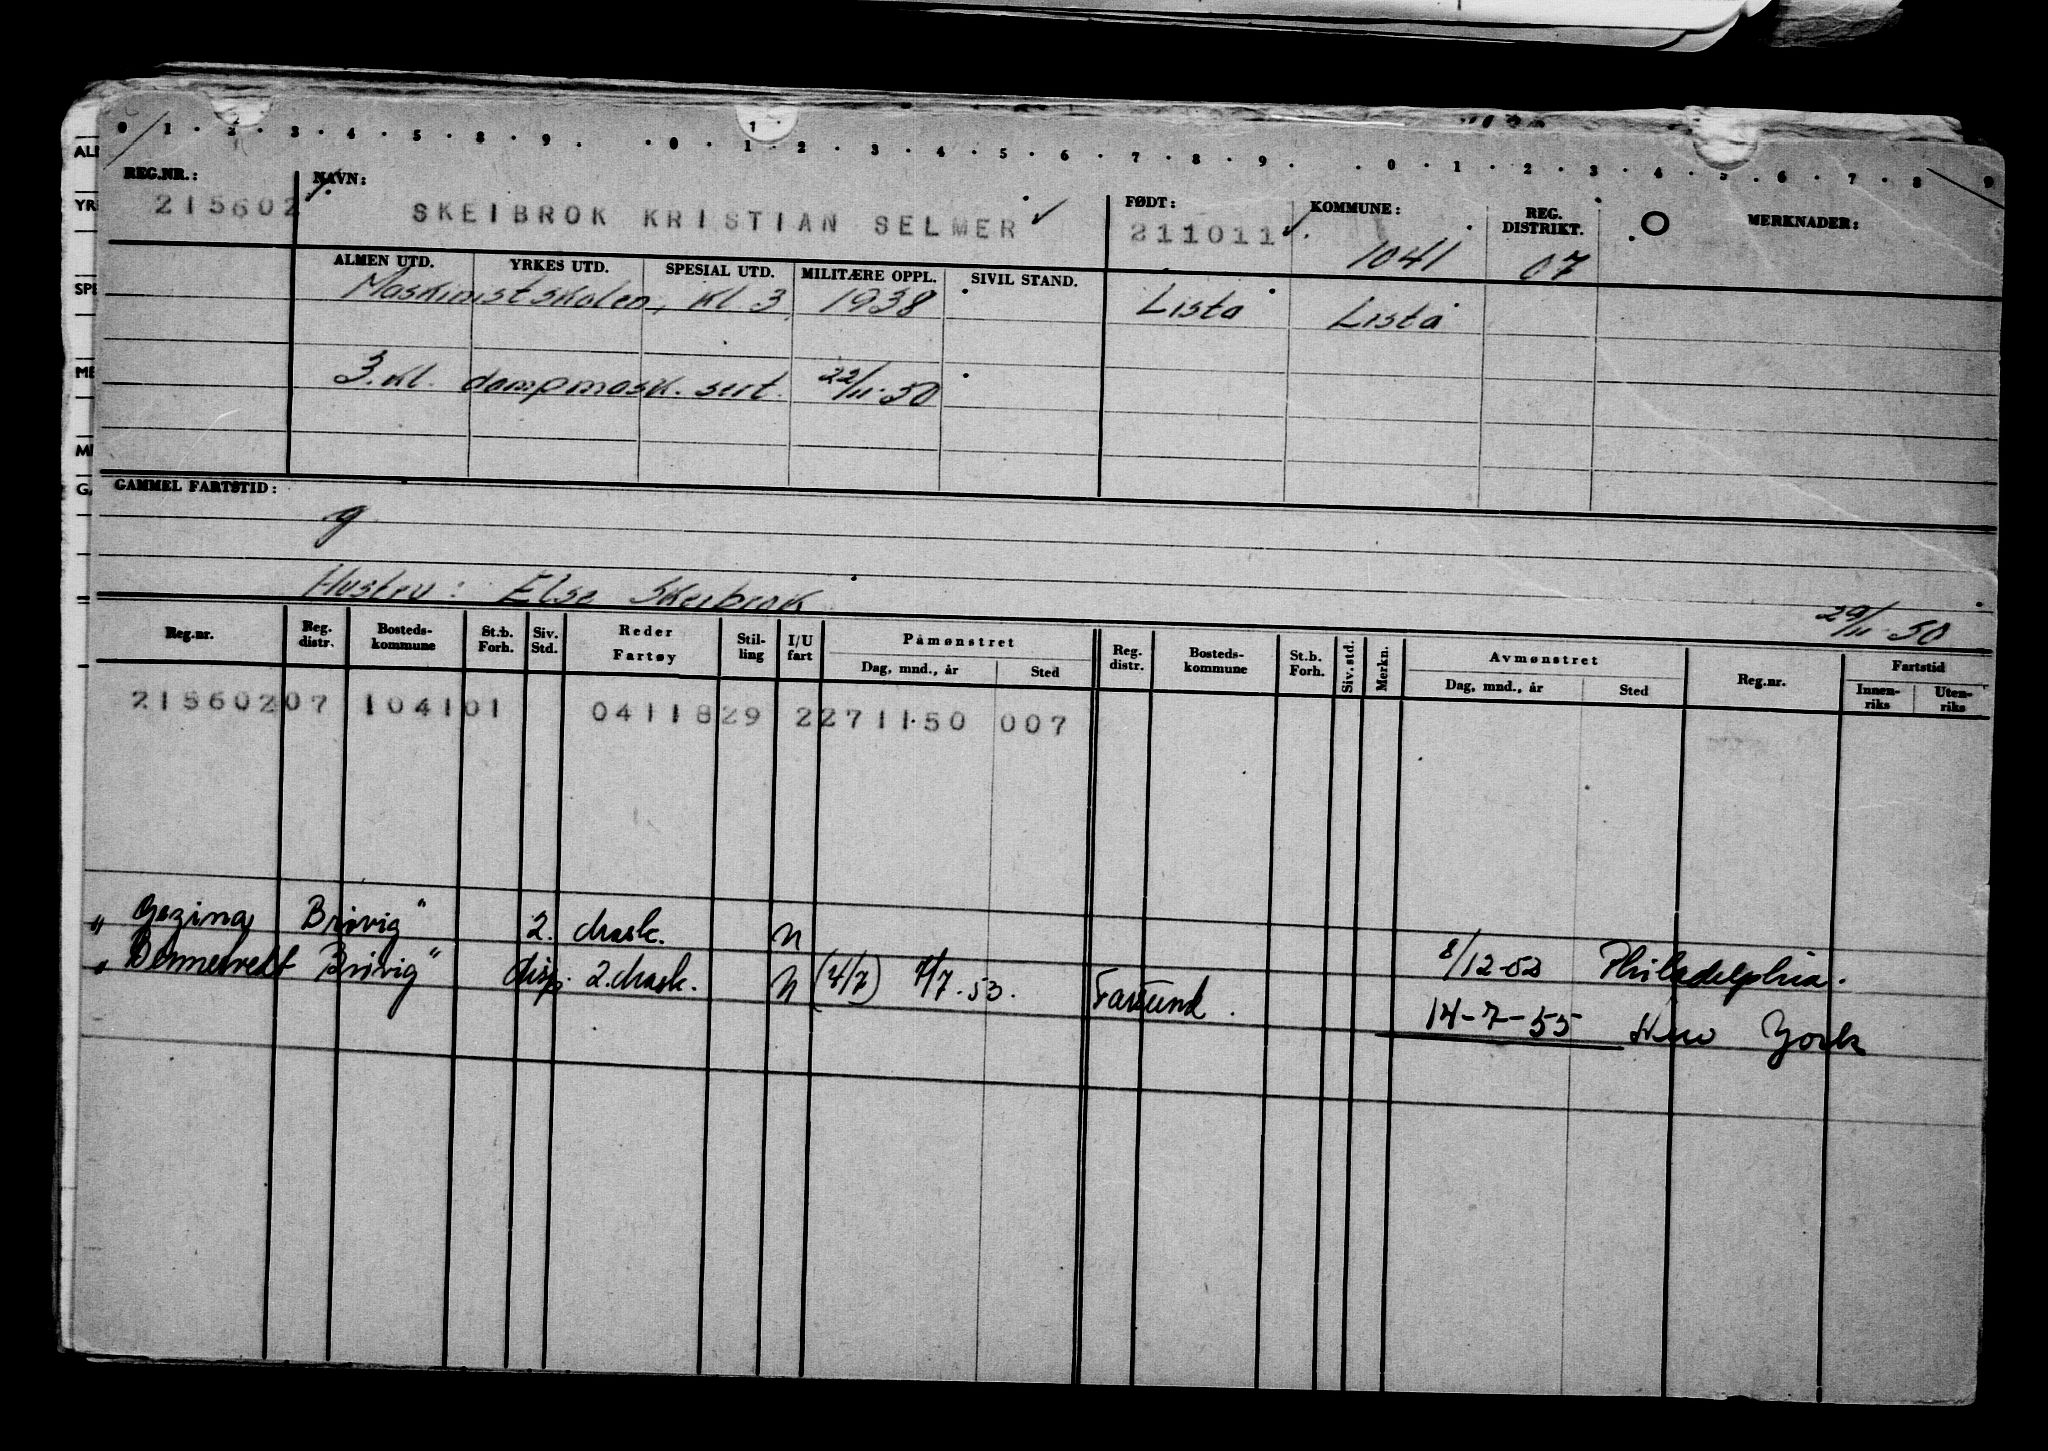 0 1 · 2 · 3 · 4 · 5 · 8 · 9 · · 0 · 1 2 · 3 · 4 · 5 · 6 · 7 · 8 · 9 · · 0 · 1 · 2 · 3 · 4 · 5 · 6 · 7 · 8 · 9
1
REG.NR.: NAVN: FØDT: KOMMUNE: REG. DISTRIKT. O MERKNADER:
215602 SKEIBROK KRISTIAN SELMER 211011 1041 07
ALMEN UTD. YRKES UTD. SPESIAL UTD. MILITÆRE OPPL. SIVIL STAND.
Maskinistskolen, kl 3 1938 Lista Lista
3. kl. dampmask. sert. 22/11-50
GAMMEL FARTSTID:
g
Hustru: Else Skeibrok
29/11-50
Reg.nr. Reg. distr. Bosteds-kommune St.b. Forh. Siv. Std. Reder Fartøy Stil-ling I/U fart Påmønstret Dag, mnd., år Sted Reg. distr. Bosteds-kommune St.b. Forh. Siv. std. Merkn. Avmønstret Dag, mnd., år Sted Reg.nr. Fartstid Innen-riks Uten-riks
21560207 104101 0411829 2271150 007
" Gezina Brøvig" 2. mask. n 8/12-52 Philadelphia.
" Bennestvedt Brøvig" disp. 2. mask. n (4/7) 7/7-53. Farsund. 14-7-55 New York
ALM
YR
SPE